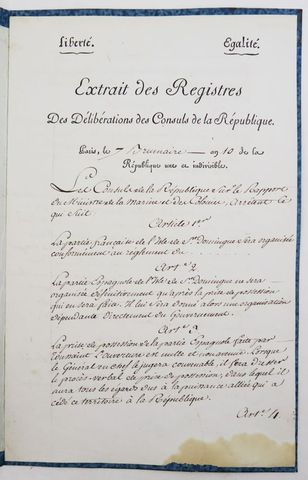 Liberté. Egalité.
Extrait des Registres
Des Délibérations des Consuls de la République.
Paris, le 7 Brumaire an 10 de la
République une et indivisible.
Les Consuls de la République sur le Rapport
du Ministre de la Marine et des Colonies, arrêtent ce
qui suit
Article 1er
La partie française de l'Isle de St Domingue sera organisée
conformément au réglement du
Art. 2
La partie Espagnole de l'Isle de St Domingue ne sera
organisée définitivement qu'après la prise de possession
qui en sera faite. Il lui sera donné alors une organisation
dépendante Directement du Gouvernement.
Art. 3
La prise de possession de la partie Espagnole faite par
Toussaint Louverture est nulle et non avenue. Lorsque
le Général en chef le jugera convenable, il fera dresser
le procès-verbal de prise de possession, dans lequel il
aura tous les égards dus à la puissance alliée qui a
cédé ce territoire à la République.
Art. 4